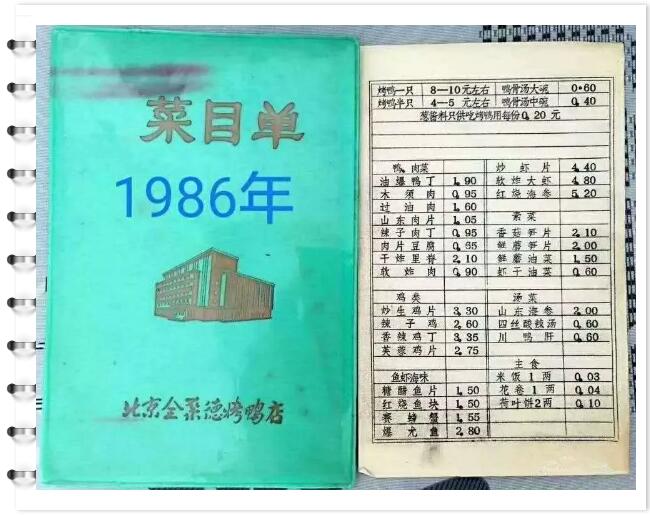 菜目单
1986年
北京全聚德烤鸭店
烤鸭一只 8—10元左右 鸭骨汤大碗 0.60
烤鸭半只 4—5元左右 鸭骨汤中碗 0.40
葱酱料只供吃烤鸭用每份0.20元
鸭、肉菜 炒虾片 4.40
油爆鸭丁 1.90 软炸大虾 4.80
木须肉 0.95 红烧海参 5.20
过油肉 1.60
山东肉片 1.05 素菜
辣子肉丁 0.95 香菇笋片 2.10
肉片豆腐 0.65 鲜蘑笋片 2.00
干炸里脊 2.10 鲜蘑油菜 1.50
软炸肉 0.90 虾子油菜 0.60
鸡类 汤菜
炒生鸡片 3.30 山东海参 2.00
辣子鸡 2.60 四丝酸辣汤 0.60
香辣鸡丁 3.35 川鸭肝 0.60
芙蓉鸡片 2.75
主食
鱼虾海味 米饭1两 0.03
糖醋鱼片 1.50 花卷1两 0.04
红烧鱼块 1.50 荷叶饼2两 0.10
赛螃蟹 1.55
爆尤鱼 2.80